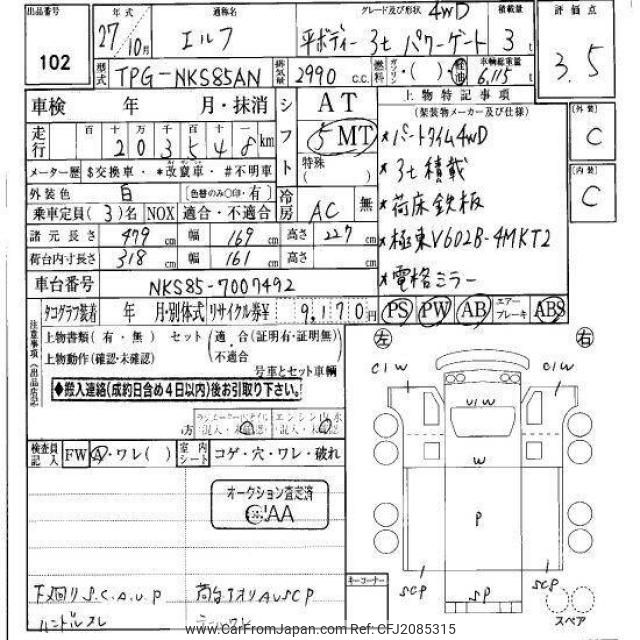 出品番号 年式 通称名 グレード及び形状 積載量 評価点
102 27年 10月 エルフ 4WD 平ボディー 3t パワーゲート 3t 3.5
型式 TPG-NKS85AN 排気量 2990 c.c. 燃料 ガソリン・( )・軽油 車輌総重量 6,115
車検 年 月・抹消 シフト AT 上物特記事項
(架装物メーカー及び仕様)
走行 百 十 万 千 百 十 一
203548 km 5 MT ★パートタイム4WD 外装 C
メーター歴 $交換車・*改竄車・#不明車 特殊( ) ★3t積載
外装色 白 [色替のみ○印・有] 冷房 AC 無 ★荷床鉄板 内装 C
乗車定員(3)名 NOX 適合・不適合
諸元長さ 479cm 幅 169cm 高さ 227cm ★極東V602B-4MKT2
荷台内寸長さ 318cm 幅 161cm 高さ cm
車台番号 NKS85-7007492 ★電格ミラー
タコグラフ装着 年 月・別体式 リサイクル券¥ 9,170円 PS PW AB エアーブレーキ ABS
注意事項(出品店記入)
上物書類(有・無) セット(適合(証明有・証明無) 不適合
上物動作(確認・未確認) 号車とセット車輌
左 右
◆搬入連絡(成約日含め4日以内)後お引取り下さい。
C1W C1W
U1W
混入・未確認 混入・未確認
W
検査員記入 FW A・ワレ( ) 室内シート コゲ・穴・ワレ・破れ
オークション査定済
AA
P
下廻りS.C.A.U.P 荷台アオリAUSCP
キーコーナー
SCP SP SCP
ハンドルスレ
スペア
www.CarFromJapan.com Ref: CFJ2085315